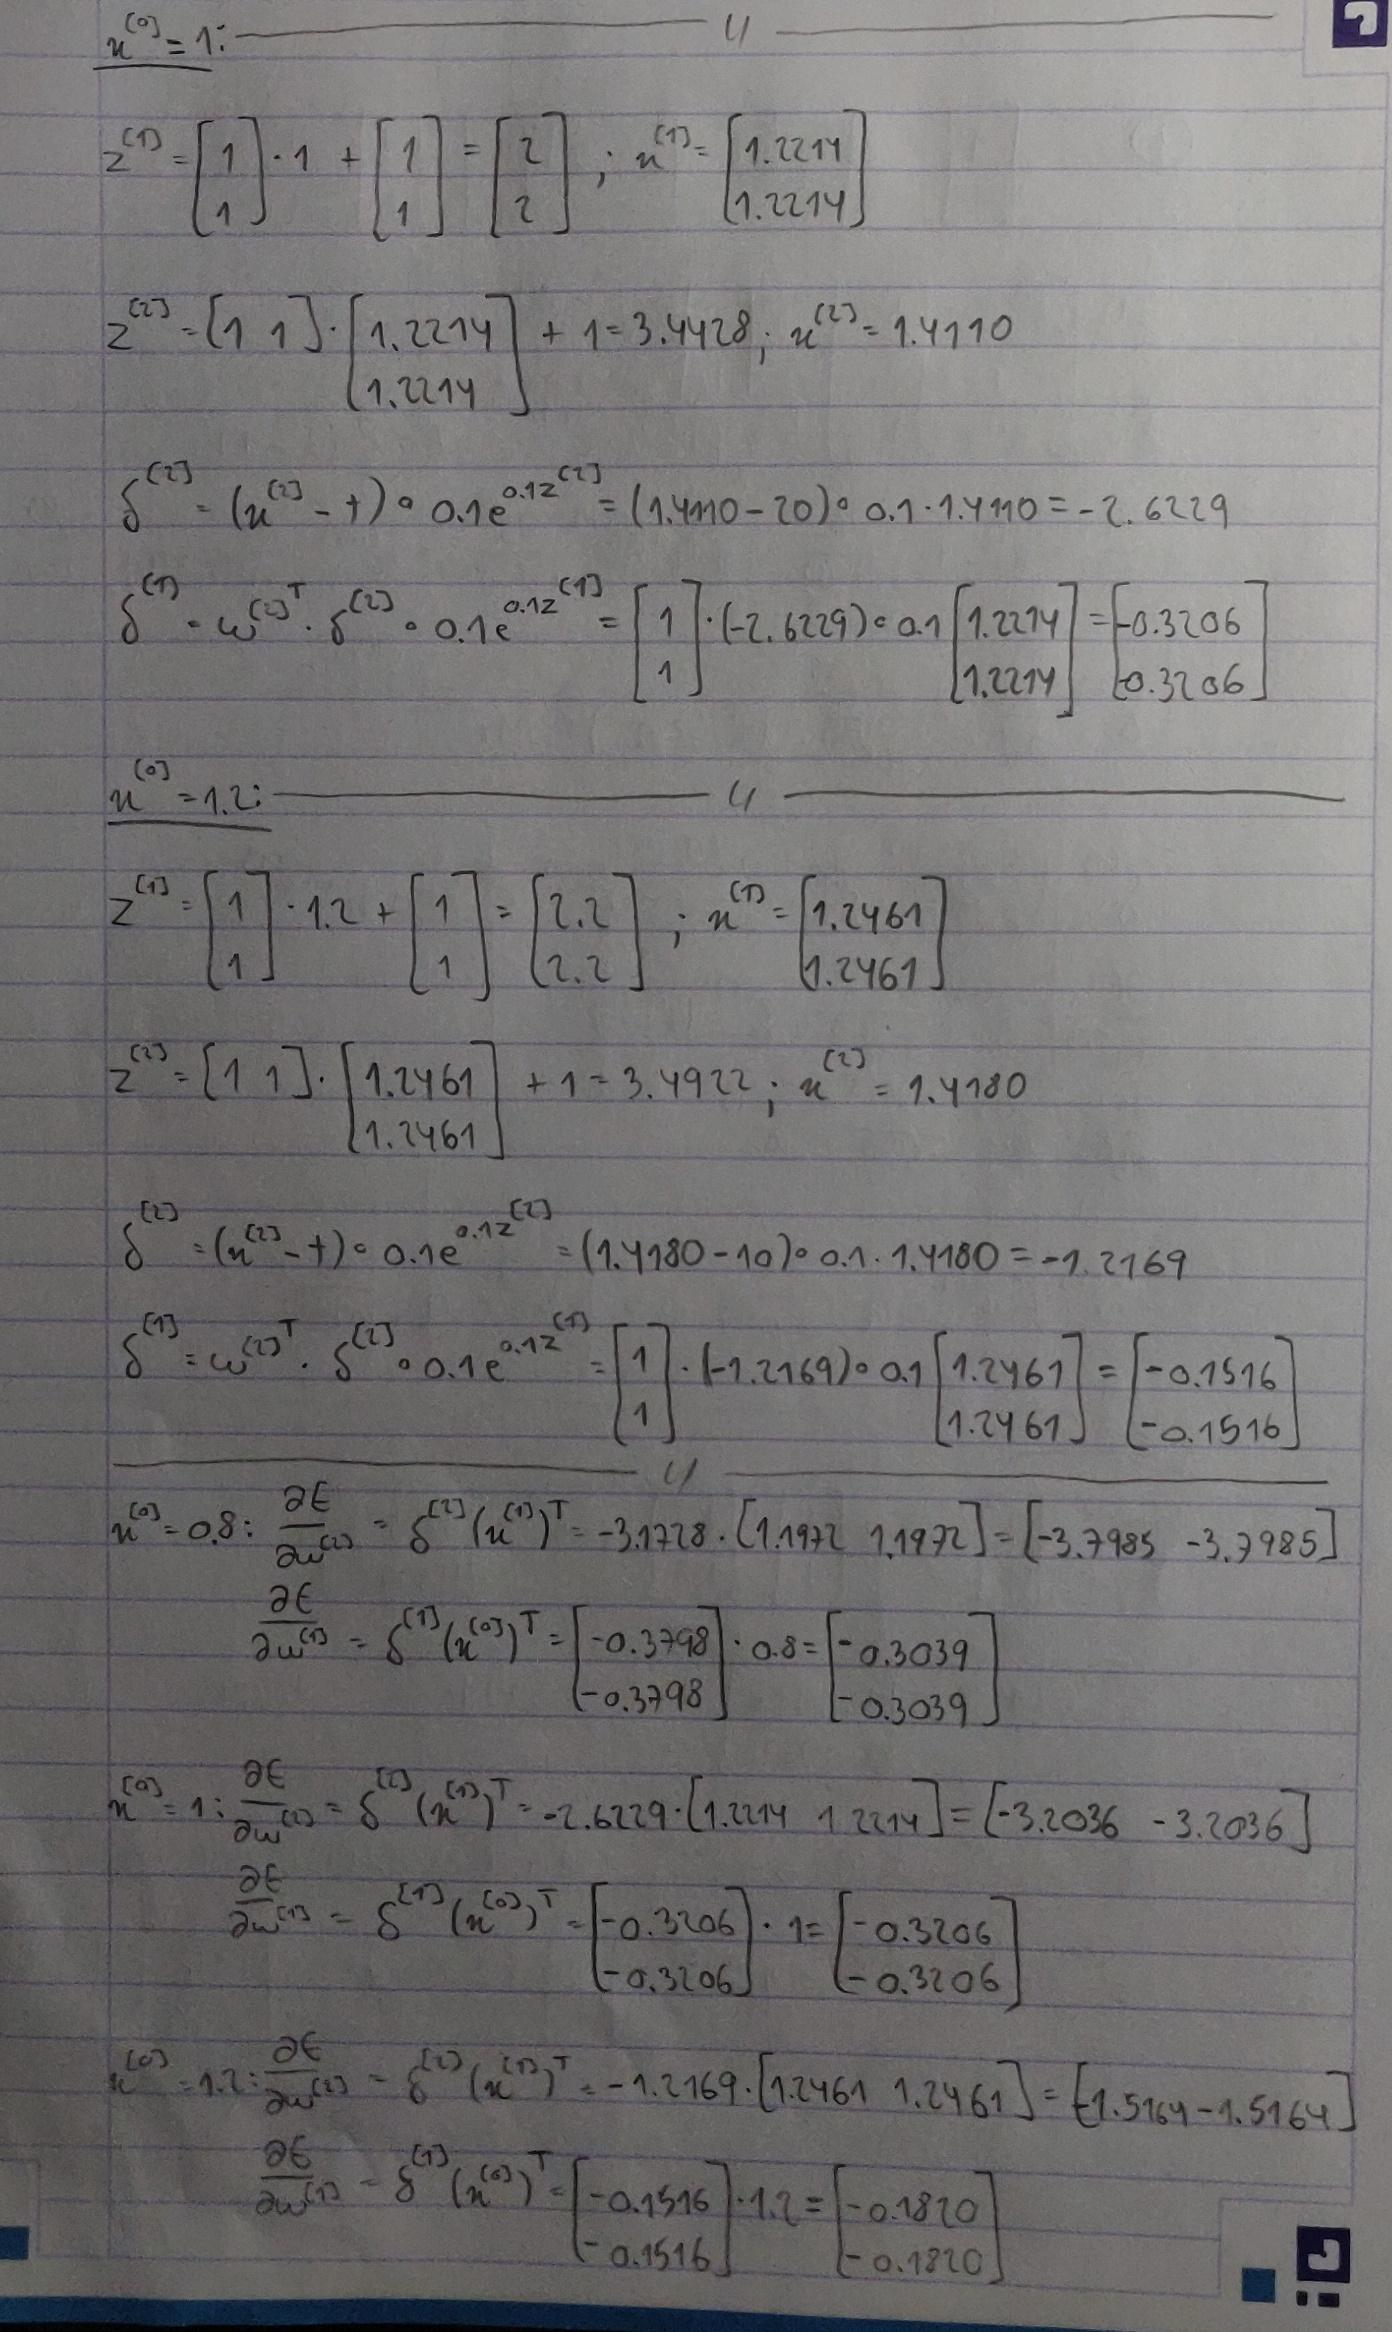 x^[0] = 1:
z^[1] = [1 1] · 1 + [1 1] = [2 2] ; x^[1] = [1.2214 1.2214]
z^[2] = [1 1] · [1.2214 1.2214] + 1 = 3.4428; x^[2] = 1.4110
δ^[2] = (x^[2] - t) ∘ 0.1e^0.1z^[2] = (1.4110 - 20) ∘ 0.1 · 1.4110 = -2.6229
δ^[1] = w^[2]T · δ^[2] ∘ 0.1e^0.1z^[1] = [1 1] · (-2.6229) ∘ 0.1 [1.2214 1.2214] = [-0.3206 -0.3206]
x^[0] = 1.2:
z^[1] = [1 1] · 1.2 + [1 1] = [2.2 2.2] ; x^[1] = [1.2461 1.2461]
z^[2] = [1 1] · [1.2461 1.2461] + 1 = 3.4922; x^[2] = 1.4180
δ^[2] = (x^[2] - t) ∘ 0.1e^0.1z^[2] = (1.4180 - 10) ∘ 0.1 · 1.4180 = -1.2169
δ^[1] = w^[2]T · δ^[2] ∘ 0.1e^0.1z^[1] = [1 1] · (-1.2169) ∘ 0.1 [1.2461 1.2461] = [-0.1516 -0.1516]
x^[0] = 0.8: ∂E/∂w^[2] = δ^[2] (x^[1])^T = -3.1728 · [1.1972 1.1972] = [-3.7985 -3.7985]
∂E/∂w^[1] = δ^[1] (x^[0])^T = [-0.3798 -0.3798] · 0.8 = [-0.3039 -0.3039]
x^[0] = 1: ∂E/∂w^[2] = δ^[2] (x^[1])^T = -2.6229 · [1.2214 1.2214] = [-3.2036 -3.2036]
∂E/∂w^[1] = δ^[1] (x^[0])^T = [-0.3206 -0.3206] · 1 = [-0.3206 -0.3206]
x^[0] = 1.2: ∂E/∂w^[2] = δ^[2] (x^[1])^T = -1.2169 · [1.2461 1.2461] = [-1.5164 -1.5164]
∂E/∂w^[1] = δ^[1] (x^[0])^T = [-0.1516 -0.1516] · 1.2 = [-0.1820 -0.1820]